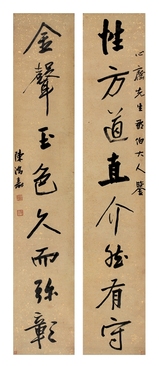 心齋先生親伯大人鑒
性方道直介然有守
金聲玉色久而弥彰
陳鴻壽